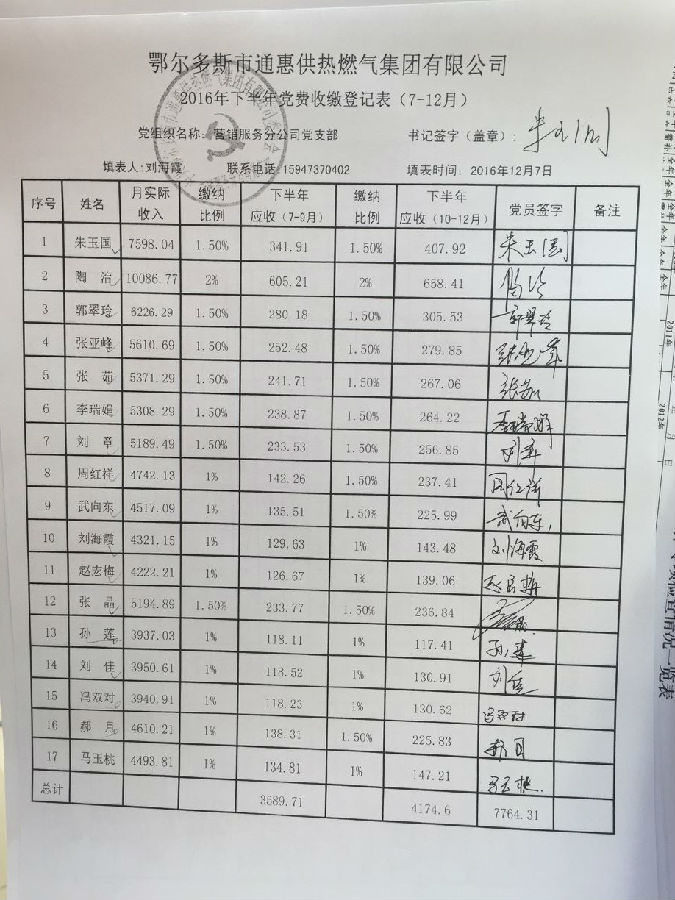 鄂尔多斯市通惠供热燃气集团有限公司
2016年下半年党费收缴登记表（7-12月）
党组织名称：营销服务分公司党支部 书记签字（盖章）：朱玉国
填表人：刘海霞 联系电话：15947370402 填表时间：2016年12月7日
序号 姓名 月实际收入 缴纳比例 下半年应收（7-9月） 缴纳比例 下半年应收（10-12月） 党员签字 备注
1 朱玉国 7598.04 1.50% 341.91 1.50% 407.92 朱玉国
2 陶 冶 10086.77 2% 605.21 2% 658.41 陶冶
3 郭翠玲 6226.29 1.50% 280.18 1.50% 305.53 郭翠玲
4 张亚峰 5610.69 1.50% 252.48 1.50% 279.85 张亚峰
5 张 茹 5371.29 1.50% 241.71 1.50% 267.06 张茹
6 李瑞娟 5308.29 1.50% 238.87 1.50% 264.22 李瑞娟
7 刘 章 5189.49 1.50% 233.53 1.50% 256.85 刘章
8 周红祥 4742.13 1% 142.26 1.50% 237.41 周红祥
9 武向东 4517.09 1% 135.51 1.50% 225.99 武向东
10 刘海霞 4321.15 1% 129.63 1% 143.48 刘海霞
11 赵志梅 4222.21 1% 126.67 1% 139.06
12 张 晶 5194.89 1.50% 233.77 1.50% 235.84
13 孙 莲 3937.03 1% 118.11 1% 117.41 孙莲
14 刘 佳 3950.61 1% 118.52 1% 130.91 刘佳
15 冯双对 3940.91 1% 118.23 1% 130.62 冯双对
16 郝 月 4610.21 1% 138.31 1.50% 225.83 郝月
17 马玉桃 4493.81 1% 134.81 1% 147.21 马玉桃
总计 3589.71 4174.6 7764.31
2011年
2012年
情况一览表